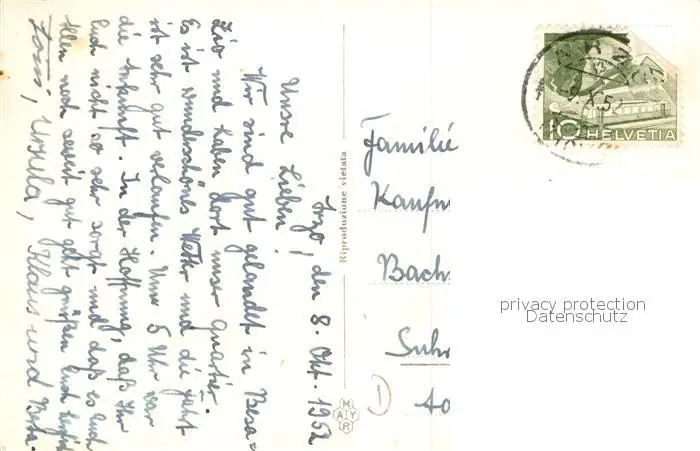 Arzo, den 8. Okt. 1952
Unsre Lieben!
Wir sind gut gelandet in Besa=
zio und haben dort unser Quartier.
Es ist wunderschönes Wetter und die Fahrt
ist sehr gut verlaufen. Um 5 Uhr war
die Ankunft. In der Hoffnung, daß Ihr
Euch nicht so sehr sorgt und daß es Euch
Allen noch soweit gut geht grüßen Euch herzlich
Ursula, Klaus und Beta.
Riproduzione vietata
MAYR
Familie
Kaufm
Bachs
Suhr
Aa
10 HELVETIA
privacy protection
Datenschutz